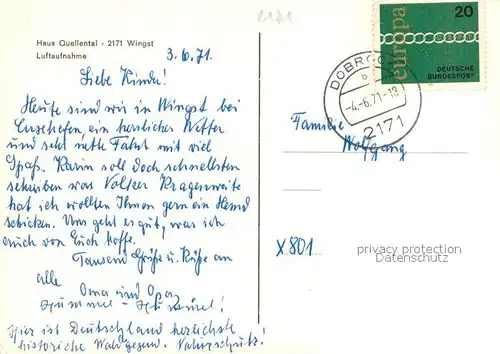 Haus Quellental - 2171 Wingst
Luftaufnahme
3.6.71.
Liebe Kinder!
Heute sind wir in Wingst bei
ein herrliches Wetter
und sehr nette Fahrt mit viel
Spaß. Karin soll doch schnellstens
schreiben was Volker Kragenweite
hat ich wollten Ihnen gern ein Hemd
schicken. Uns geht es gut, was ich
auch von Euch hoffe.
Tausend Grüße u. Küße an
alle
Oma und Opa
Hummel - Hummel!
Hier ist Deutschland herrlichste
historische Waldgegend. Naturschutz!
europa
20
DEUTSCHE
BUNDESPOST
DOBROCK
-4.-6.71-18
2171
Familie
Wolfgang
X801
privacy protection
Datenschutz